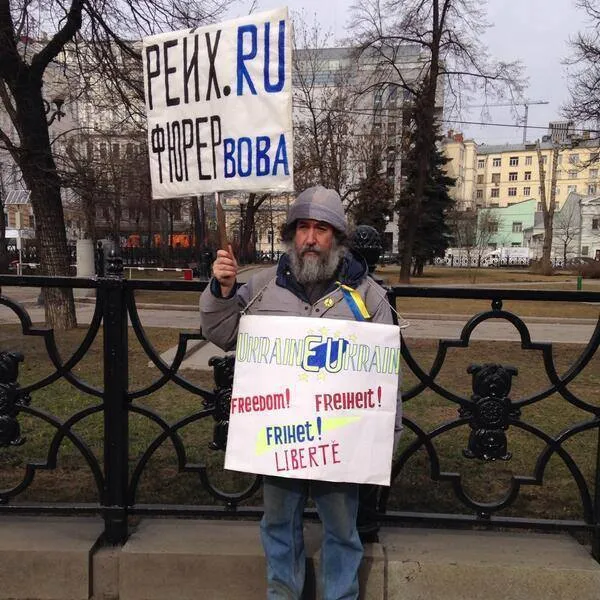 РЕЙХ.RU
ФЮРЕР ВОВА
UKRAINEUKRAIN
FREEDOM! FREIHEIT!
FRIHET!
LIBERTĒ